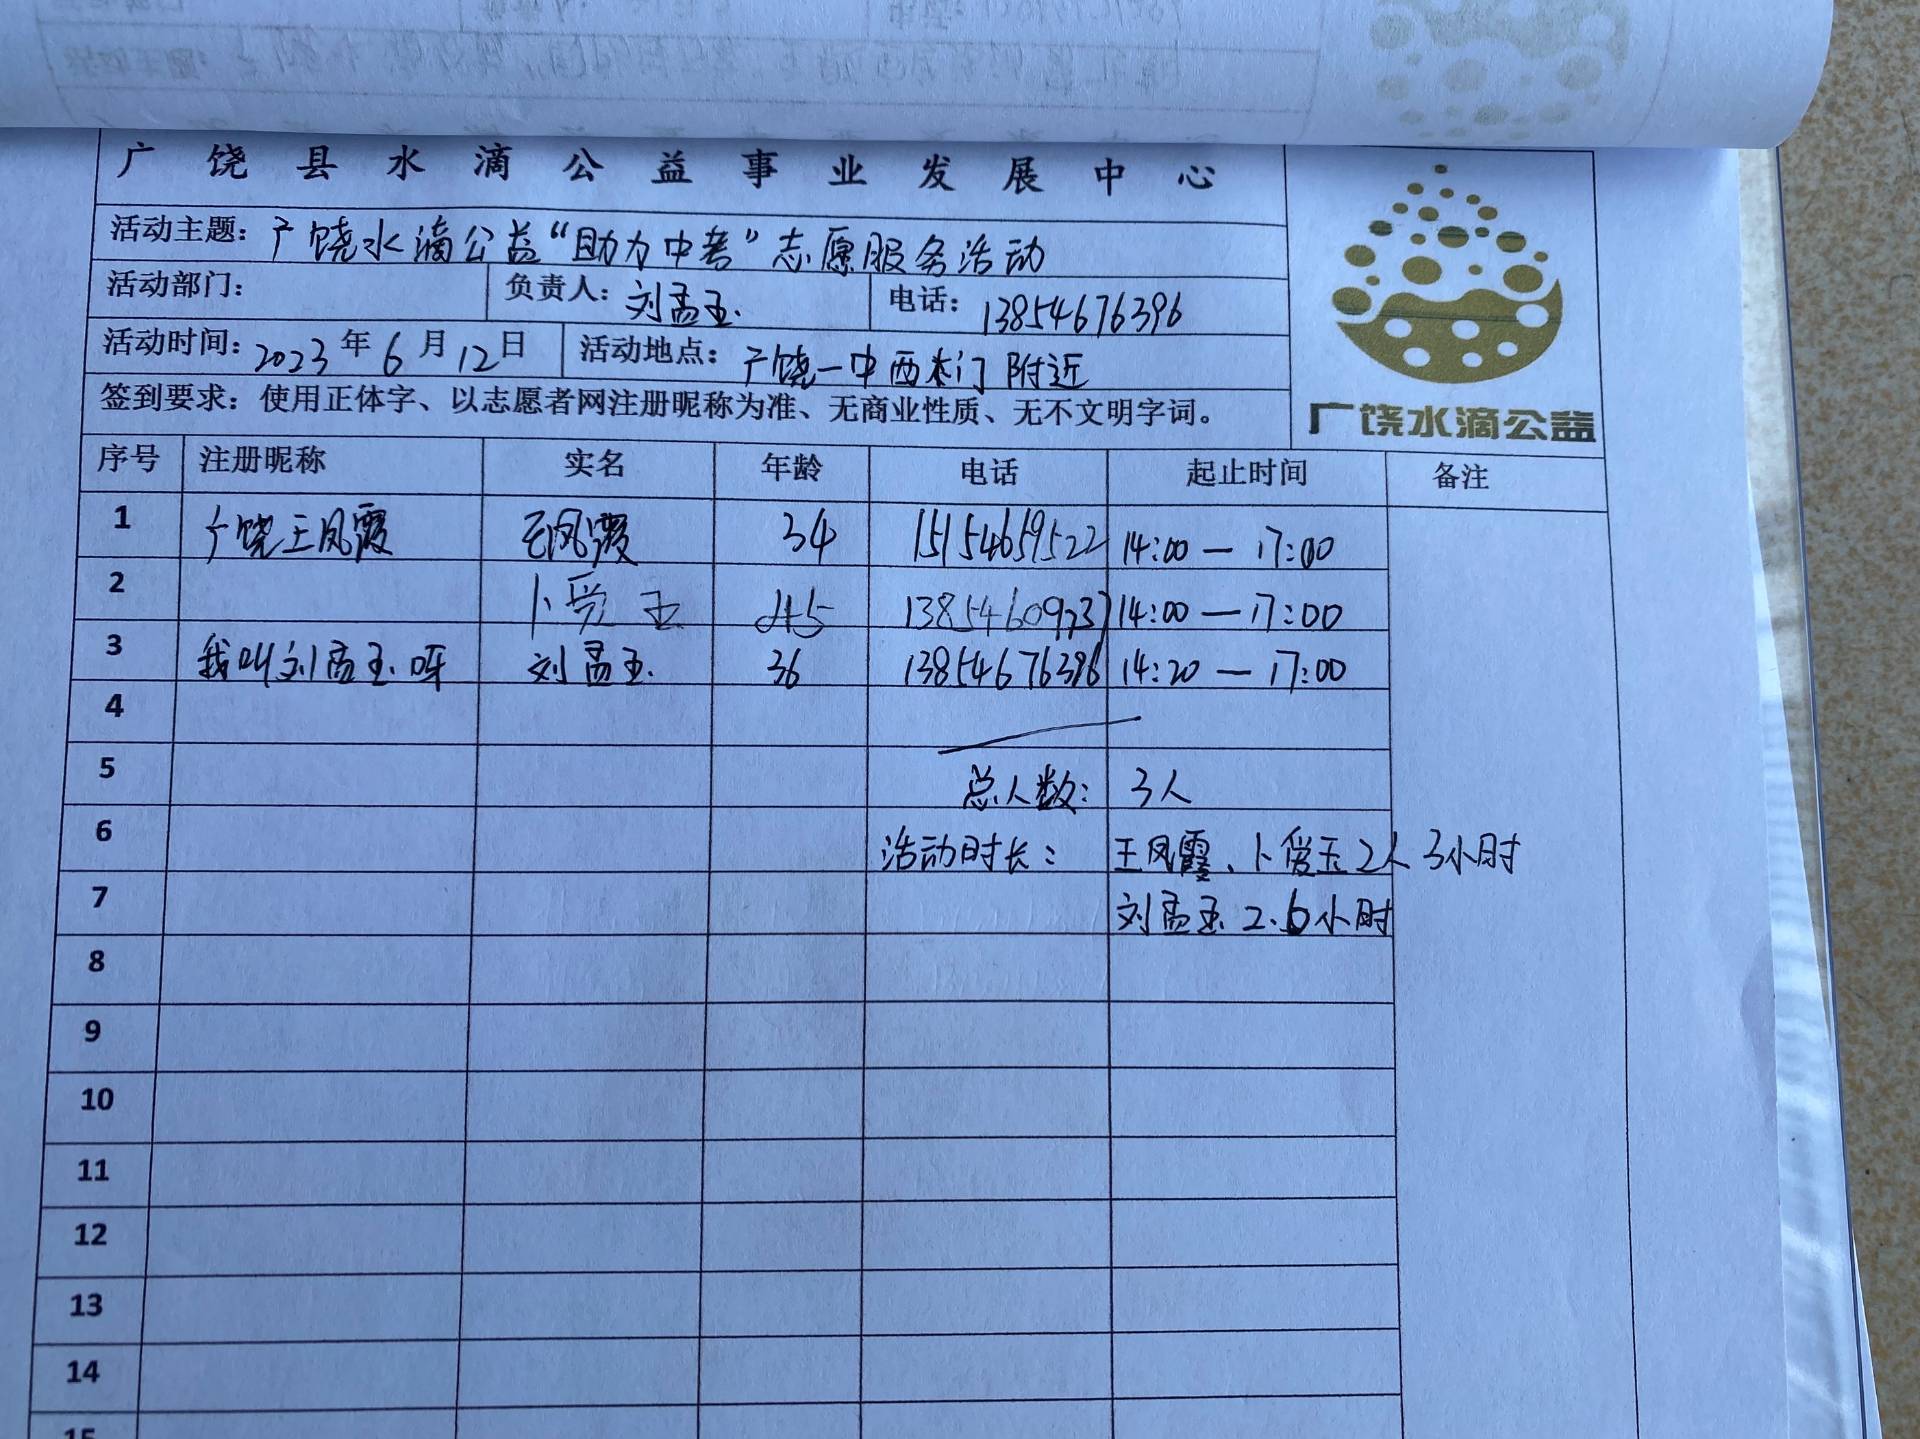 广饶县水滴公益事业发展中心
活动主题：广饶水滴公益“助力中考”志愿服务活动
活动部门： 负责人：刘孟玉 电话：13854676396
活动时间：2023年6月12日 活动地点：广饶一中西大门附近
签到要求：使用正体字、以志愿者网注册昵称为准、无商业性质、无不文明字词。
广饶水滴公益
序号 注册昵称 实名 年龄 电话 起止时间 备注
1 广饶王凤霞 王凤霞 34 15154659522 14:00—17:00
2 卜爱玉 45 14:00—17:00
3 我叫刘孟玉呀 刘孟玉 36 13854676396 14:20—17:00
4
5 总人数： 3人
6 活动时长： 王凤霞、卜爱玉2人3小时
7 刘孟玉2.6小时
8
9
10
11
12
13
14
15